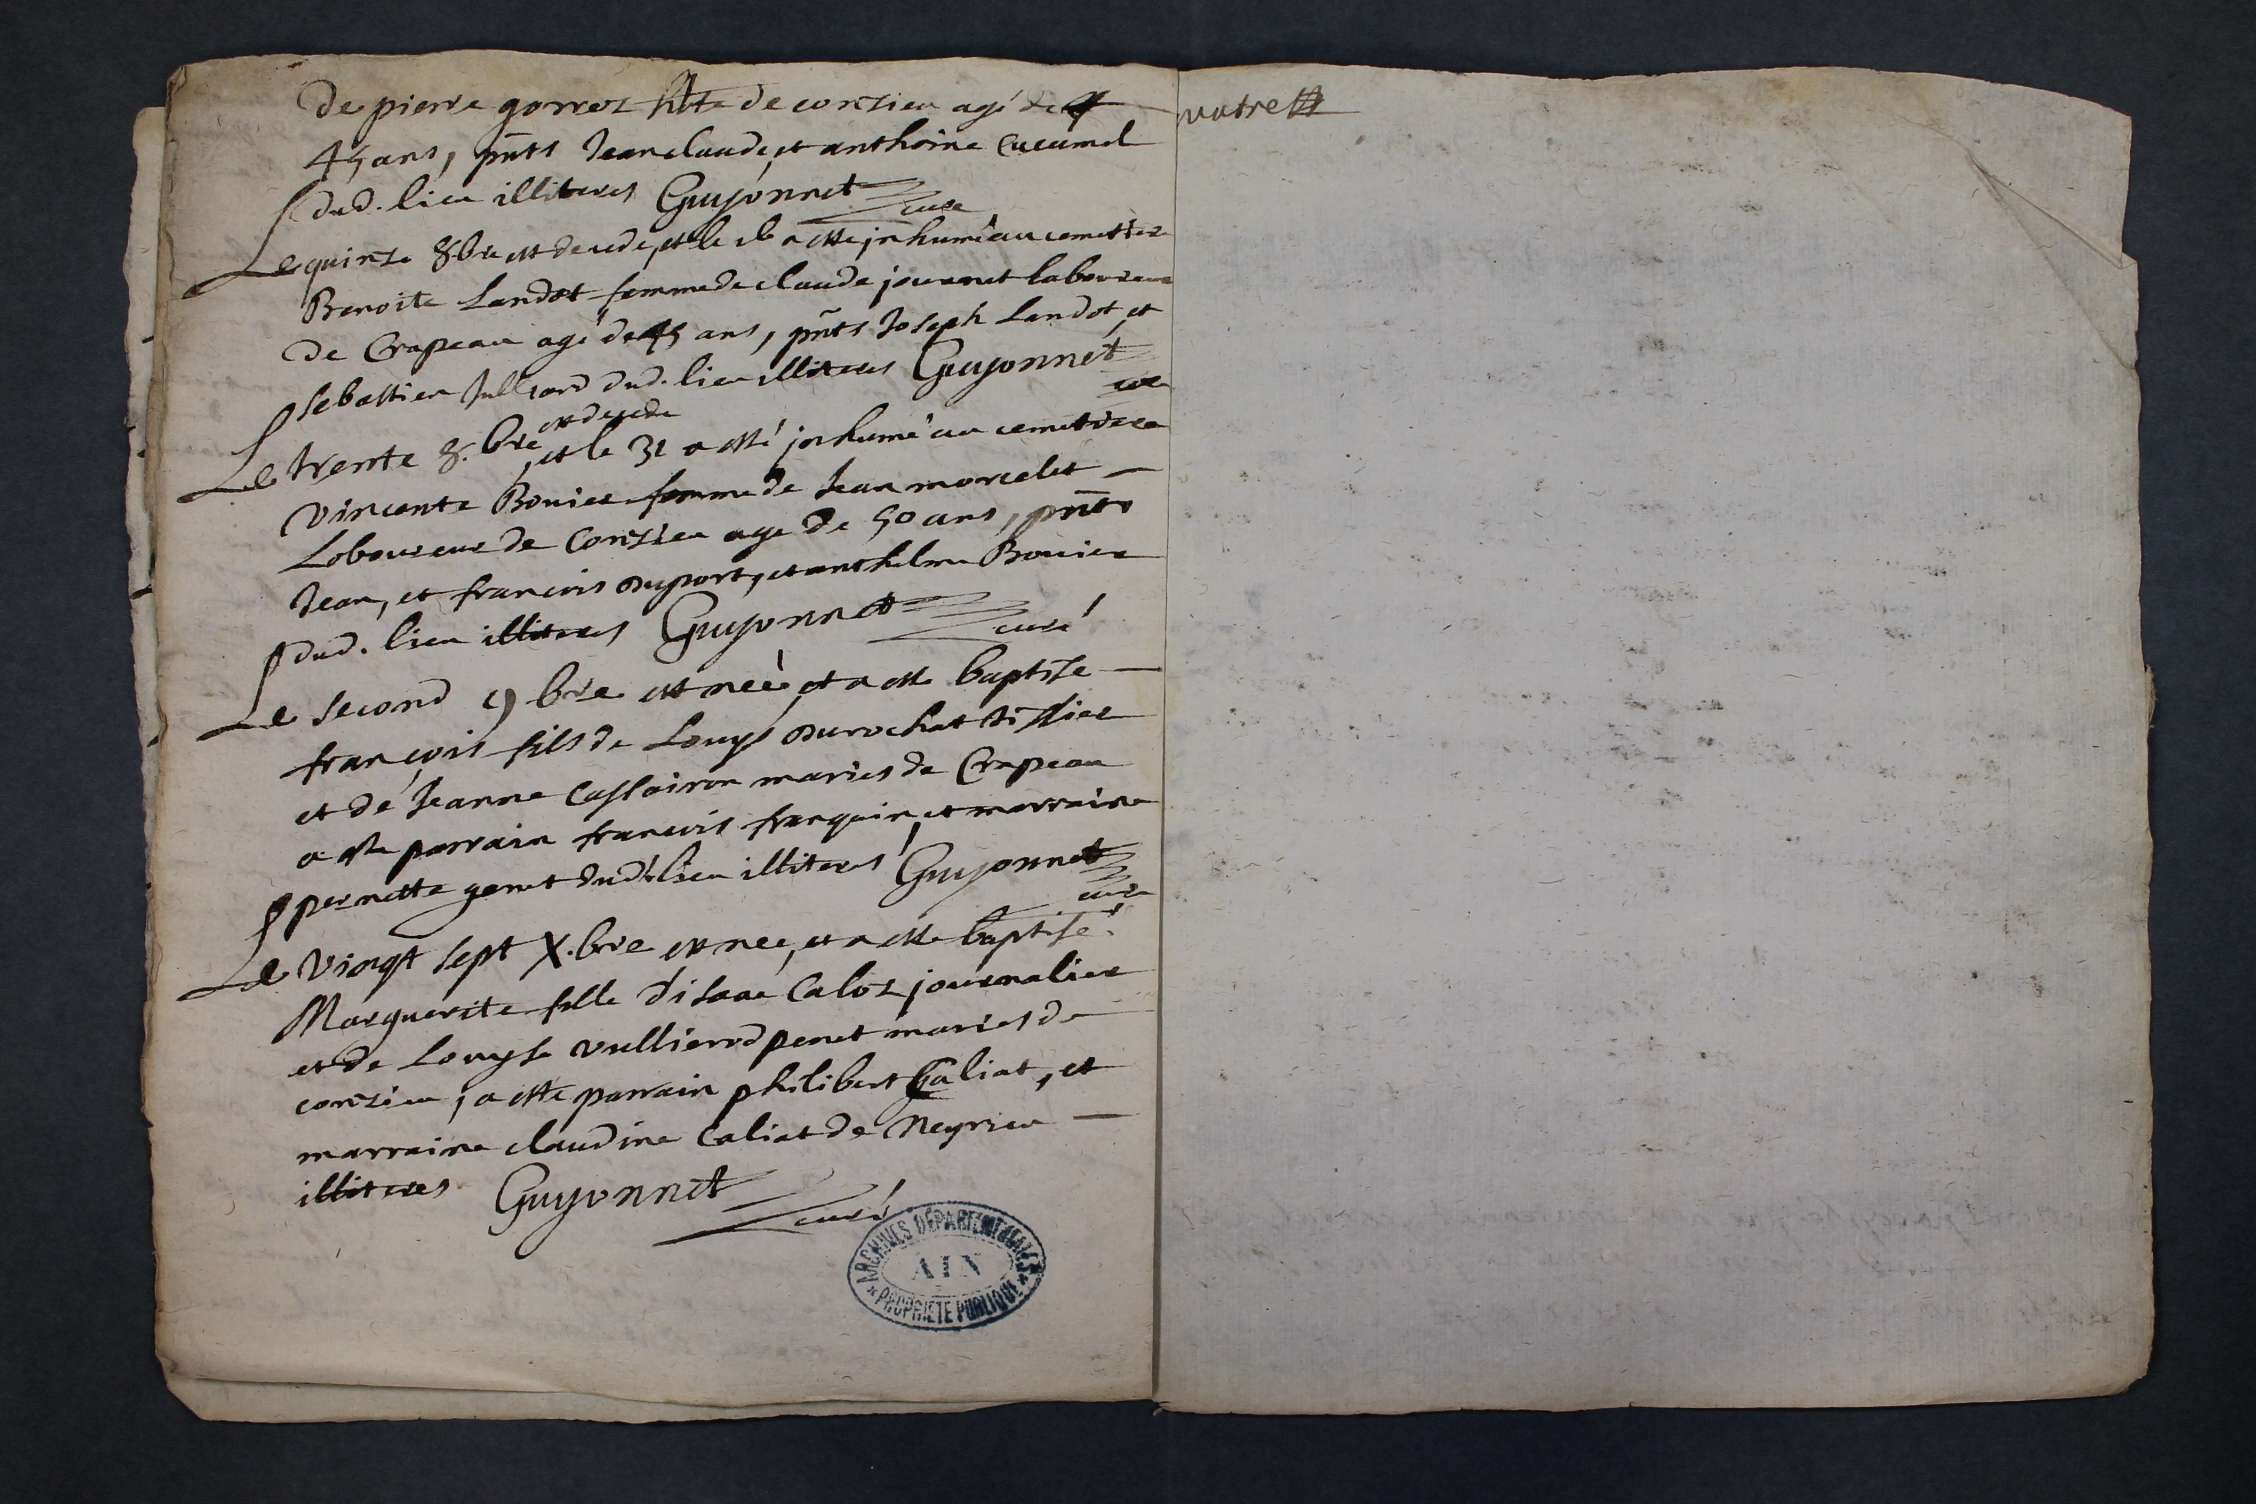 De pierre gorrez hôte de conzieu agé de
45 ans, pnts Jean claude, et anthoine Cucumel
dud. lieu illiteres Guyonnet curé
Le quinze 8.bre est decede, et le 16 a esté jnhumé au cemetier
Benoite Landot femme de claude journet laboureur
de Crapeau agé de 45 ans, pnts Joseph Landot, et
sebastien Julliard dud. lieu illiteres Guyonnet
curé
Le trente 8.bre est decede, et le 31 a esté jnhumé au cemetiere
Vincente Bouier femme de Jean morcelet
Laboureur de Conzieu agé de 50 ans, pnts
Jean, et francois Duport, et anthelme Bouier
dud. lieu illiteres Guyonnet curé
Le second 9bre est neé, et a esté baptisé
françois fils de Louys Durochat tissier
et de Jeanne Cassairon mariés de Crapeau
a esté parrain francois franquin, et marraine
pernette genet dud. lieu illiteres Guyonnet
curé
Le Vingt sept X.bre est neé, et a esté baptisé
Marguerite fille d'isaac Caloz journalier
et de Louyse vullierod penet mariés de
conzieu, a esté parrain philibert Galiat, et
marraine claudine Caliat de Neyrieu
illiteres Guyonnet
curé
ARCHIVES DÉPARTEMENTALES
AIN
PROPRIETE PUBLIQUE